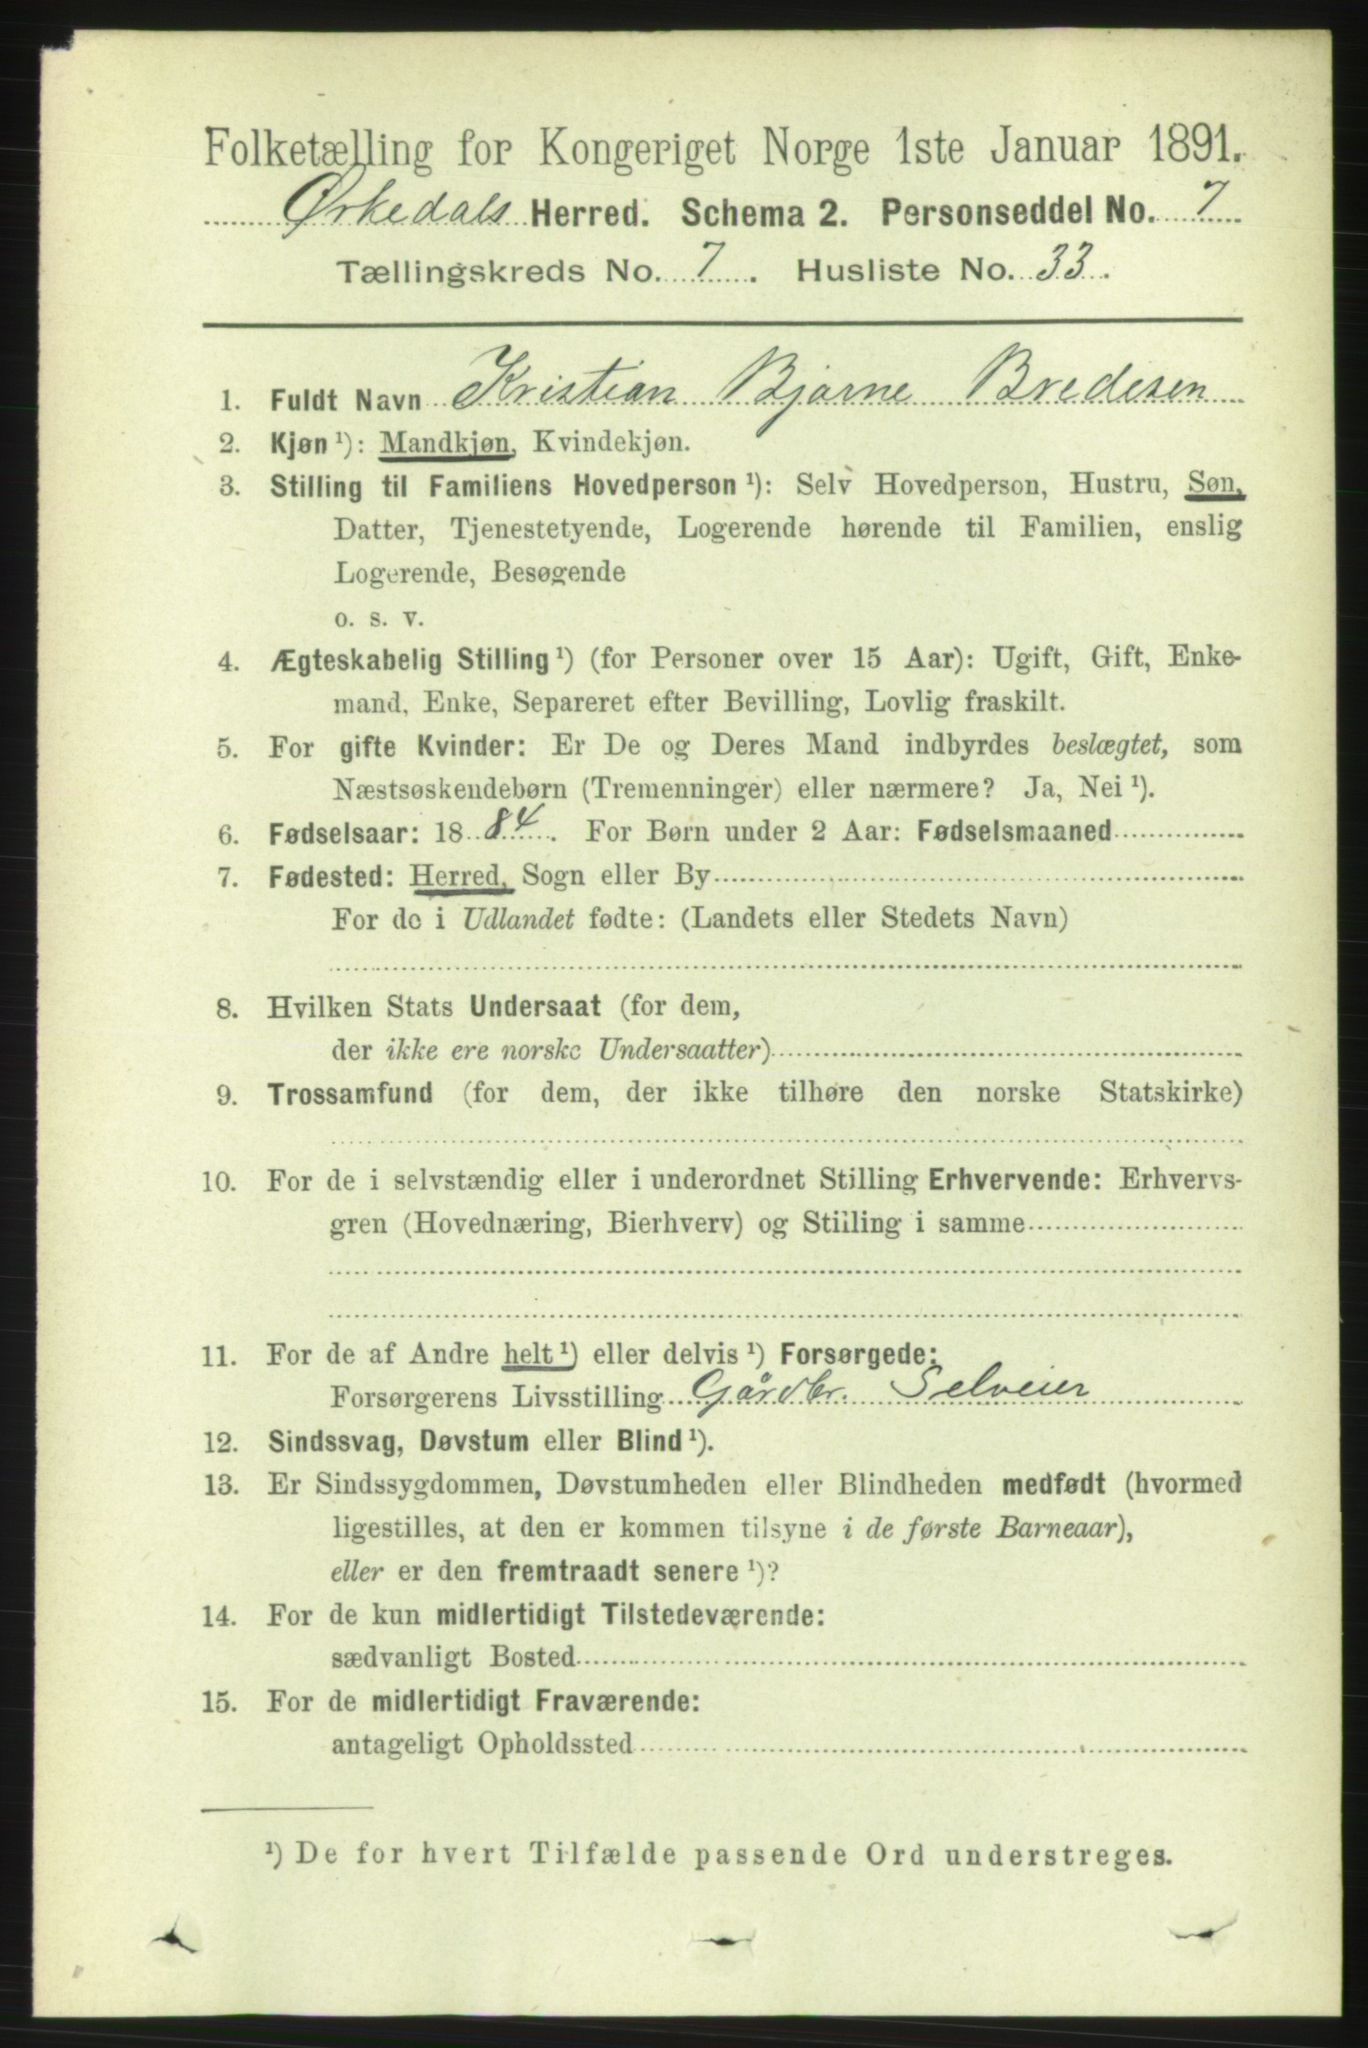 Folketælling for Kongeriget Norge 1ste Januar 1891.
Ørkedals Herred. Schema 2. Personseddel No. 7
Tællingskreds No. 7. Husliste No. 33.
1. Fuldt Navn Kristian Bjarne Bredesen
2. Kjøn ¹): Mandkjøn, Kvindekjøn.
3. Stilling til Familiens Hovedperson ¹): Selv Hovedperson, Hustru, Søn,
Datter, Tjenestetyende, Logerende hørende til Familien, enslig
Logerende, Besøgende
o. s. v.
4. Ægteskabelig Stilling ¹) (for Personer over 15 Aar): Ugift, Gift, Enke-
mand, Enke, Separeret efter Bevilling, Lovlig fraskilt.
5. For gifte Kvinder: Er De og Deres Mand indbyrdes beslægtet, som
Næstsøskendebørn (Tremenninger) eller nærmere? Ja, Nei ¹).
6. Fødselsaar: 18 84. For Børn under 2 Aar: Fødselsmaaned
7. Fødested: Herred, Sogn eller By
For de i Udlandet fødte: (Landets eller Stedets Navn)
8. Hvilken Stats Undersaat (for dem,
der ikke ere norske Undersaatter)
9. Trossamfund (for dem, der ikke tilhøre den norske Statskirke)
10. For de i selvstændig eller i underordnet Stilling Erhvervende: Erhvervs-
gren (Hovednæring, Bierhverv) og Stilling i samme
11. For de af Andre helt ¹) eller delvis ¹) Forsørgede:
Forsørgerens Livsstilling Gårdbr. Selveier
12. Sindssvag, Døvstum eller Blind ¹).
13. Er Sindssygdommen, Døvstumheden eller Blindheden medfødt (hvormed
ligestilles, at den er kommen tilsyne i de første Barneaar),
eller er den fremtraadt senere ¹)?
14. For de kun midlertidigt Tilstedeværende:
sædvanligt Bosted
15. For de midlertidigt Fraværende:
antageligt Opholdssted
¹) De for hvert Tilfælde passende Ord understreges.